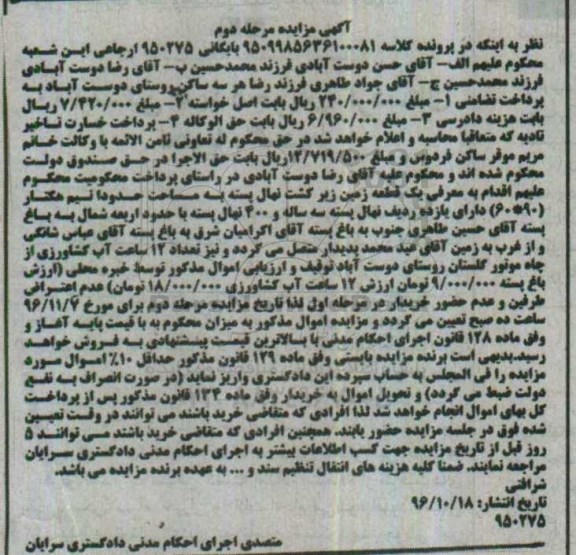 آگهی مزایده مرحله دوم
نظر به اینکه در پرونده کلاسه ۹۵۰۹۹۸۵۶۳۶۱۰۰۰۸۱ بایگانی ۹۵۰۲۷۵ ارجاعی این شعبه
محکوم علیهم الف- آقای حسن دوست آبادی فرزند محمدحسین ب- آقای رضا دوست آبادی
فرزند محمدحسین ج- آقای جواد طاهری فرزند رضا هر سه ساکن روستای دوست آباد به
پرداخت تضامنی ۱- مبلغ ۲۴۰/۰۰۰/۰۰۰ ریال بابت اصل خواسته ۲- مبلغ ۷/۴۲۰/۰۰۰ ریال
بابت هزینه دادرسی ۳- مبلغ ۶/۹۶۰/۰۰۰ ریال بابت حق الوکاله ۴- پرداخت خسارت تاخیر
تادیه که متعاقبا محاسبه و اعلام خواهد شد در حق محکوم له تعاونی ثامن الائمه با وکالت خانم
مریم موقر ساکن فردوس و مبلغ ۱۲/۷۱۹/۵۰۰ ریال بابت حق الاجرا در حق صندوق دولت
محکوم شده اند و محکوم علیه آقای رضا دوست آبادی در راستای پرداخت محکومیت محکوم
علیهم اقدام به معرفی یک قطعه زمین زیر کشت نهال پسته به مساحت حدودا نیم هکتار
(۹۰*۶۰) دارای یازده ردیف نهال پسته سه ساله و ۴۰۰ نهال پسته با حدود اربعه شمال به باغ
پسته آقای حسین طاهری جنوب به باغ پسته آقای اکرامیان شرق به باغ پسته آقای عباس شانگی
و از غرب به زمین آقای عبد محمد پدیدار متصل می گردد و نیز تعداد ۱۲ ساعت آب کشاورزی از
چاه موتور گلستان روستای دوست آباد توقیف و ارزیابی اموال مذکور توسط خبره محلی (ارزش
باغ پسته ۹/۰۰۰/۰۰۰ تومان ارزش ۱۲ ساعت آب کشاورزی ۱۸/۰۰۰/۰۰۰ تومان) عدم اعتراض
طرفین و عدم حضور خریدار در مرحله اول لذا تاریخ مزایده مرحله دوم برای مورخ ۹۶/۱۱/۷
ساعت ده صبح تعیین می گردد و مزایده اموال مذکور به میزان محکوم به با قیمت پایه آغاز و
وفق ماده ۱۲۸ قانون اجرای احکام مدنی با بالاترین قیمت پیشنهادی به فروش خواهد
رسید.بدیهی است برنده مزایده بایستی وفق ماده ۱۲۹ قانون مذکور حداقل ۱۰٪ اموال مورد
مزایده را فی المجلس به حساب سپرده این دادگستری واریز نماید (در صورت انصراف به نفع
دولت ضبط می گردد) و تحویل اموال به خریدار وفق ماده ۱۳۴ قانون مذکور پس از پرداخت
کل بهای اموال انجام خواهد شد لذا افرادی که متقاضی خرید باشند می توانند در وقت تعیین
شده فوق در جلسه مزایده حضور یابند. همچنین افرادی که متقاضی خرید باشند می توانند ۵
روز قبل از تاریخ مزایده جهت کسب اطلاعات بیشتر به اجرای احکام مدنی دادگستری سرایان
مراجعه نمایند. ضمنا کلیه هزینه های انتقال تنظیم سند و ... به عهده برنده مزایده می باشد.
شرافتی
تاریخ انتشار: ۹۶/۱۰/۱۸
۹۵۰۲۷۵
متصدی اجرای احکام مدنی دادگستری سرایان